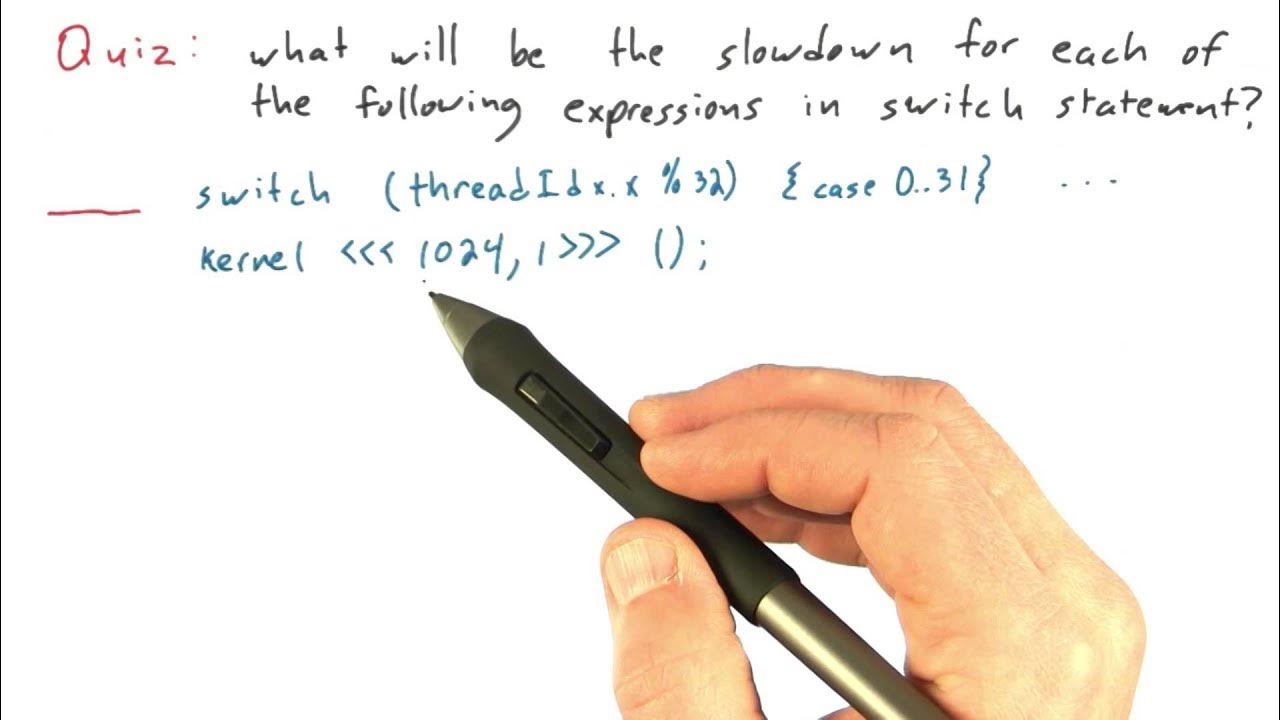 Quiz: what will be the slowdown for each of
the following expressions in switch statement?
switch (threadIdx.x % 32) { case 0..31} ...
kernel <<< 1024, 1 >>> ();